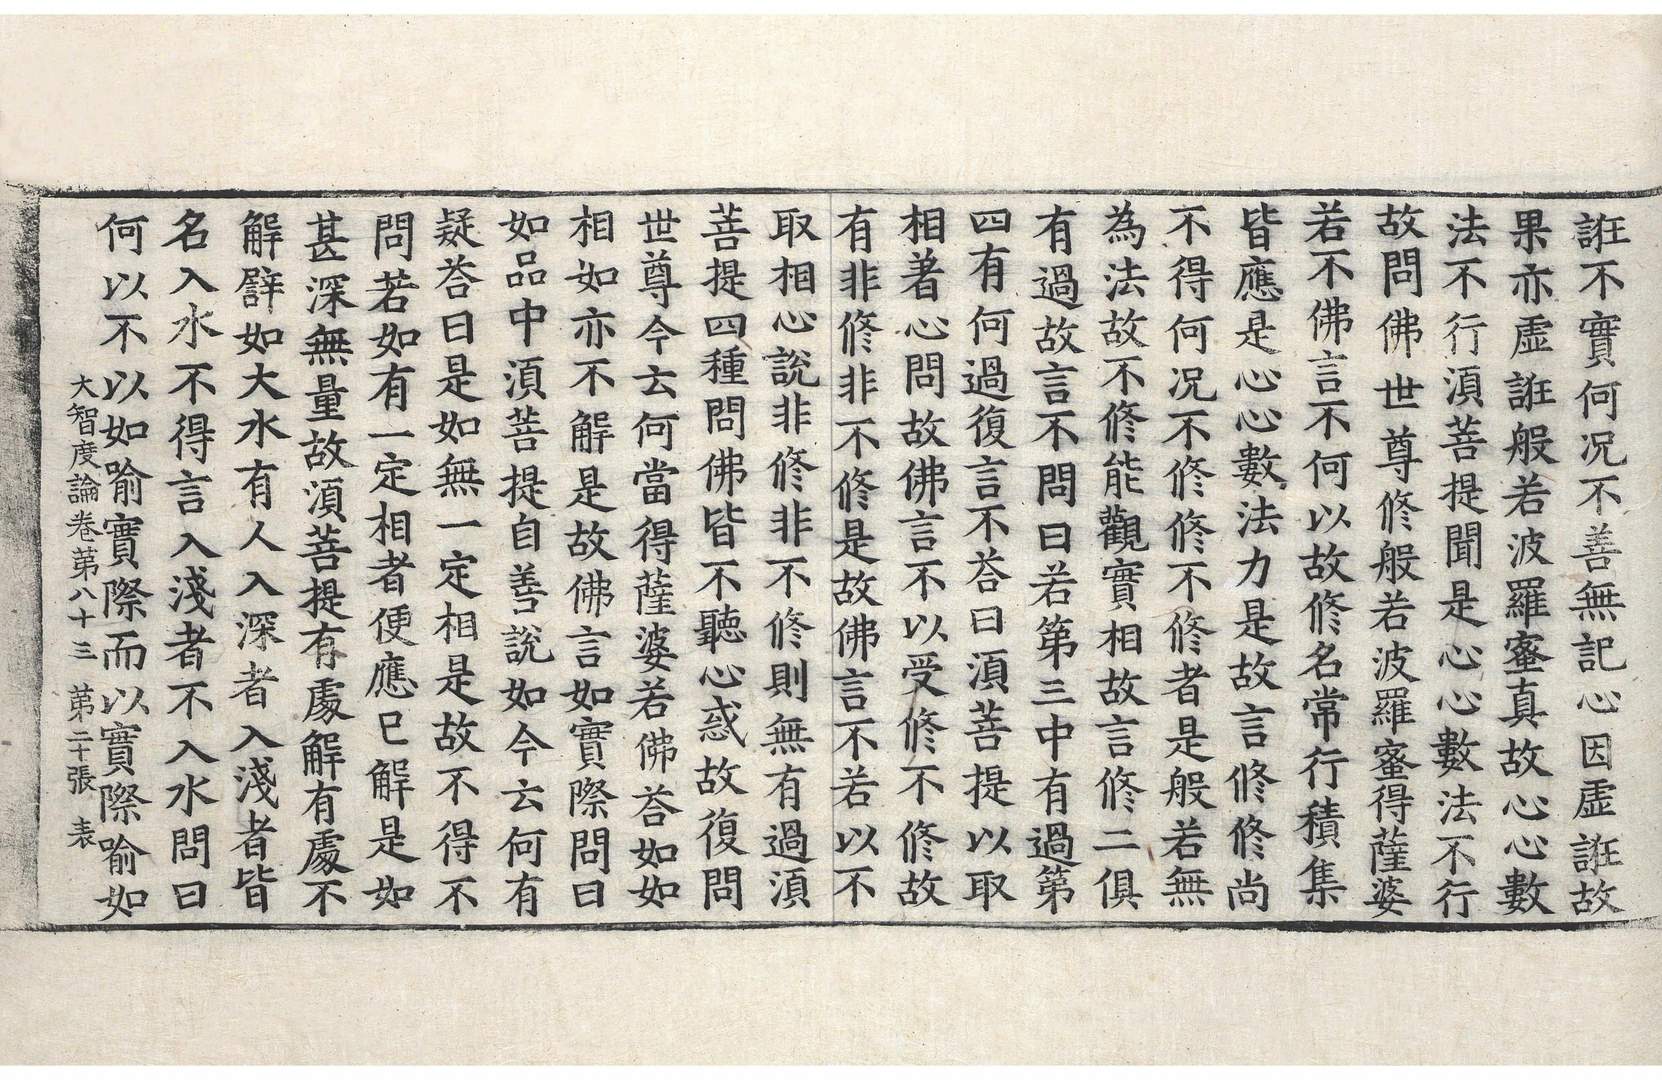 誑不實何况不善無記心因虛誑故
果亦虛誑般若波羅蜜真故心心數
法不行湏菩提聞是心心數法不行
故問佛世尊修般若波羅蜜得薩婆
若不佛言不何以故修名常行積集
皆應是心心數法力是故言修修尚
不得何况不修修不修者是般若無
為法故不修能觀實相故言修二俱
有過故言不問曰若第三中有過第
四有何過復言不荅曰湏菩提以取
相著心問故佛言不以受修不修故
有非修非不修是故佛言不若以不
取相心說非修非不修則無有過湏
菩提四種問佛皆不聽心惑故復問
世尊今云何當得薩婆若佛荅如如
相如亦不解是故佛言如實際問曰
如品中湏菩提自善說如今云何有
疑荅曰是如無一定相是故不得不
問若如有一定相者便應已解是如
甚深無量故湏菩提有處解有處不
解譬如大水有人入深者入淺者皆
名入水不得言入淺者不入水問曰
何以不以如喻實際而以實際喻如
大智度論卷第八十三 第二十張 表